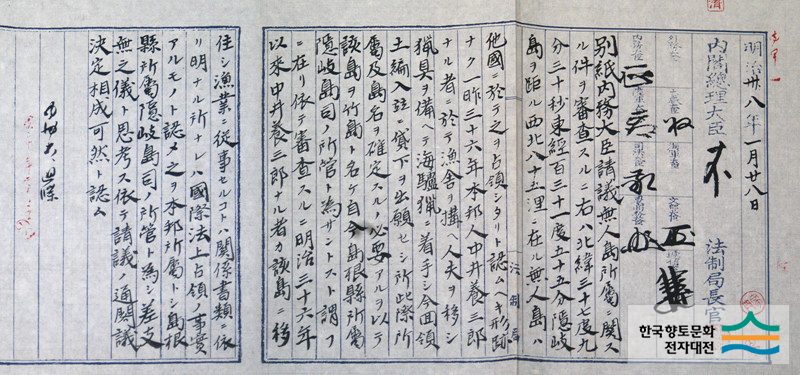 明治卅八年一月廿八日
内閣總理大臣
法制局長官
別紙内務大臣請議無人島所屬ニ關ス
ル件ヲ審査スルニ右ハ北緯三十七度九
分三十秒東經百三十一度五十五分隠岐
島ヲ距ル西北八十五浬ニ在ル無人島ハ
他國ニ於テ之ヲ占領シタリト認ムヘキ形跡
ナク一昨三十六年本邦人中井養三郎
ナル者ニ於テ漁舎ヲ構ヘ人夫ヲ移シ
猟具ヲ備ヘテ海驢猟ニ着手シ今回領
土編入並ニ貸下ヲ出願セシ所此際所
屬及島名ヲ確定スルノ必要アルヲ以テ
該島ヲ竹島ト名ケ自今島根縣所屬
隠岐島司ノ所管ト為サントスト謂フ
ニ在リ依テ審査スルニ明治三十六年
以來中井養三郎ナル者カ該島ニ移
住シ漁業ニ從事セルコトハ關係書類ニ依
リ明ナル所ナレハ國際法上占領ノ事實
アルモノト認メ之ヲ本邦所屬トシ島根
縣所屬隠岐島司ノ所管ト為シ差支
無之儀ト思考ス依テ請議ノ通閣議
決定相成可然ト認ム
法制局
한국향토문화
전자대전